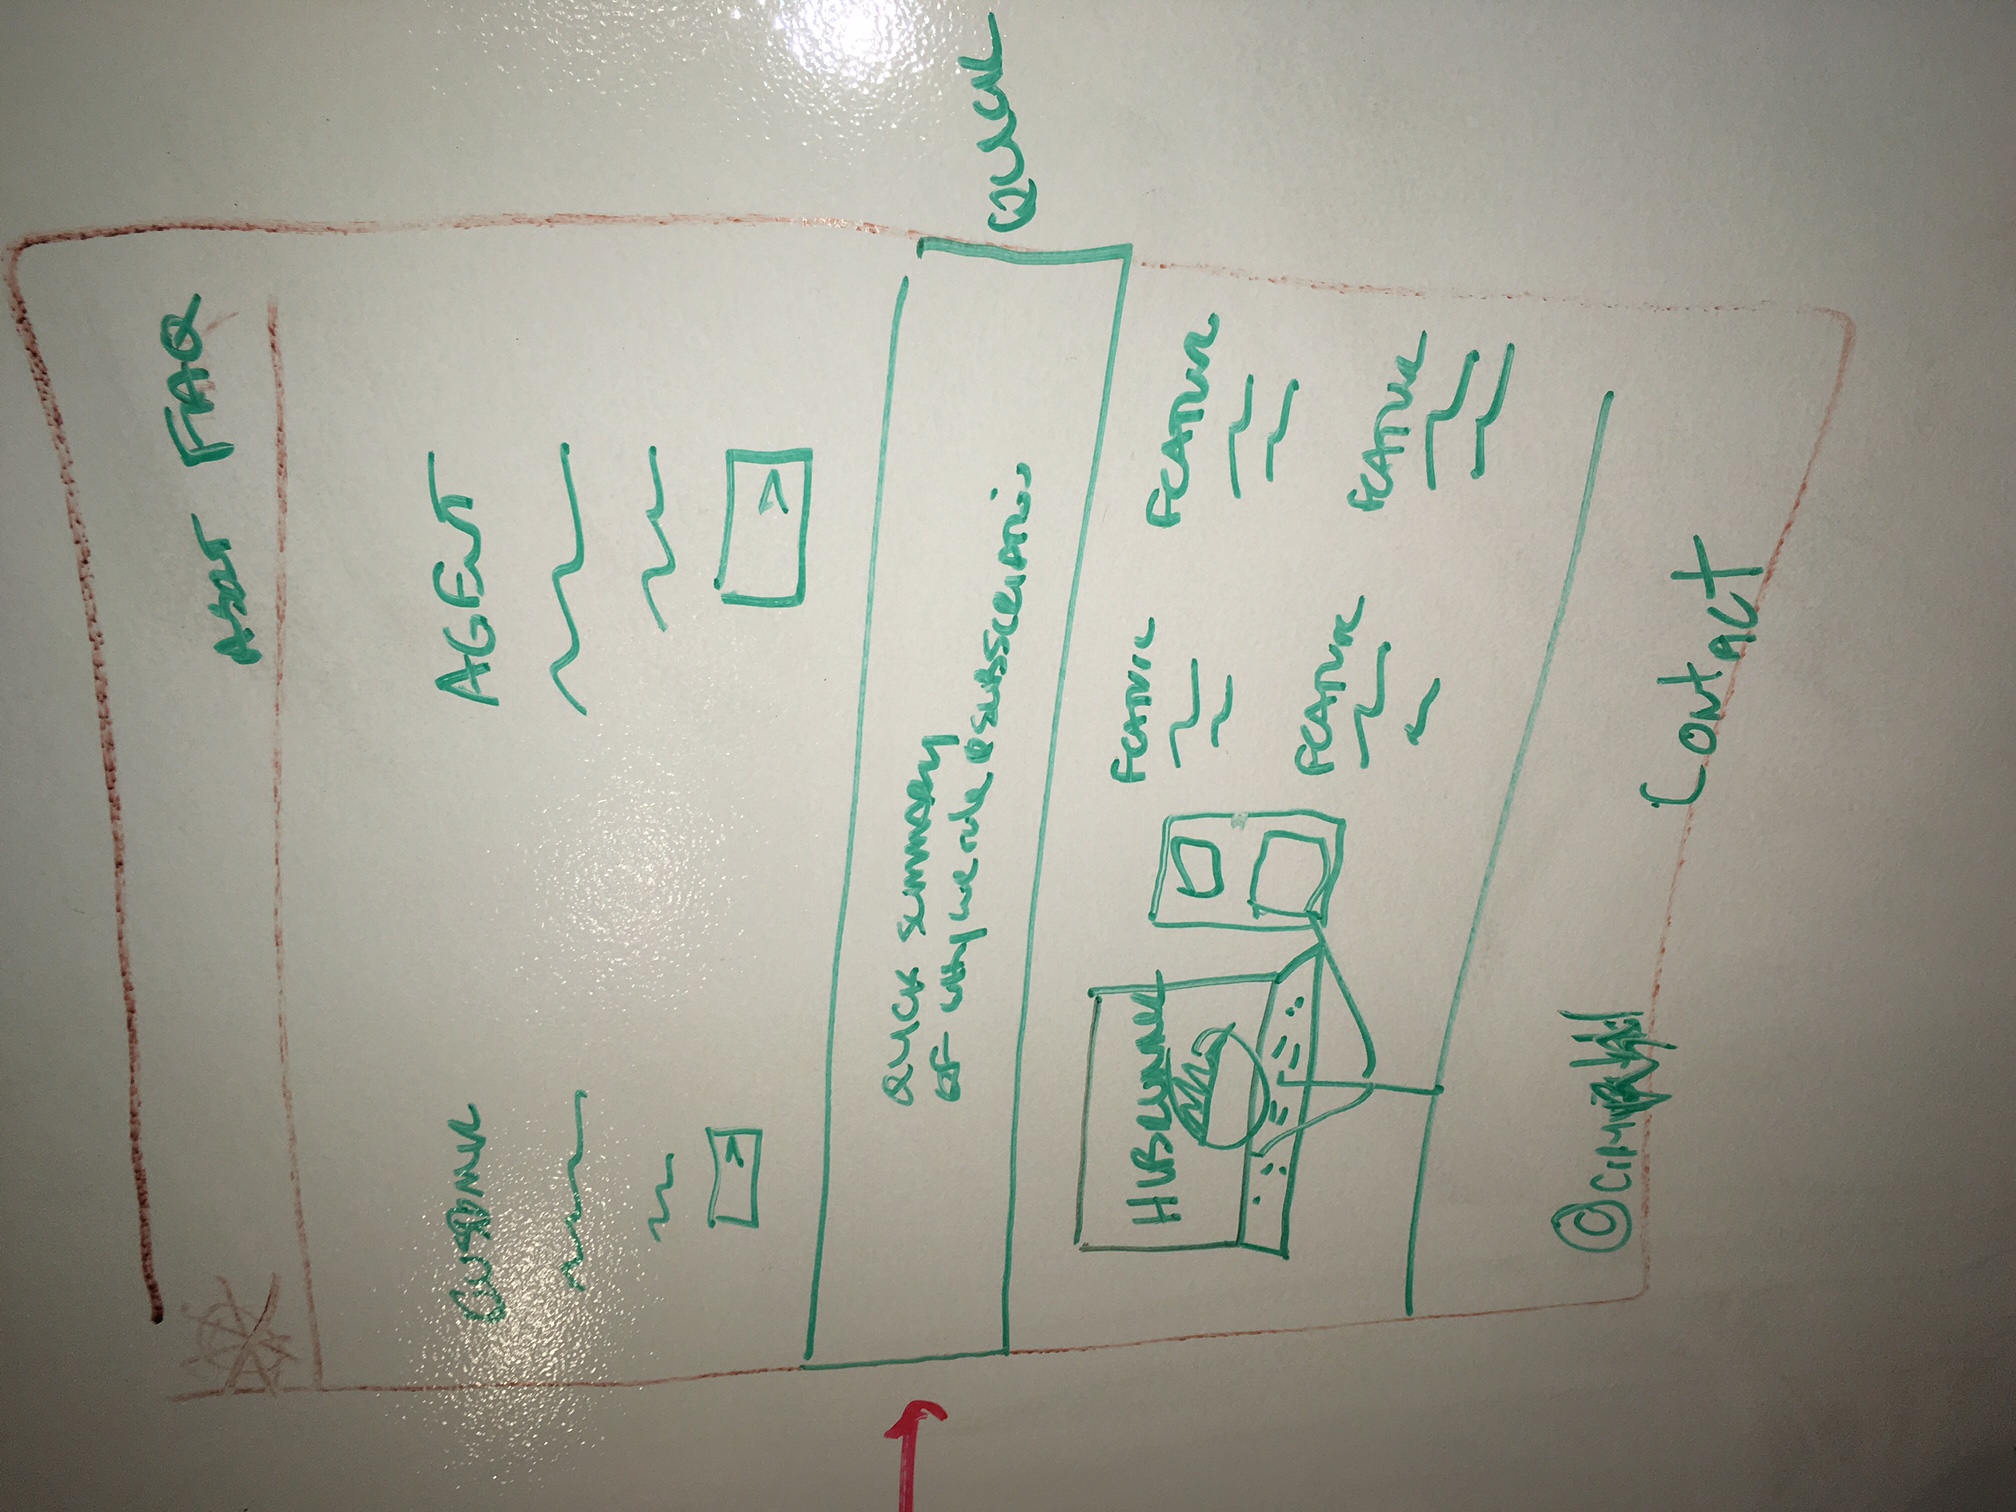 FAQ
CUSTOMER
AGENT
>
>
QUICK SUMMARY
OF WHY we rule @ SUBSCRIPTION
QUICK
HUBRUNNER
FEATURE
FEATURE
FEATURE
FEATURE
©
Contact